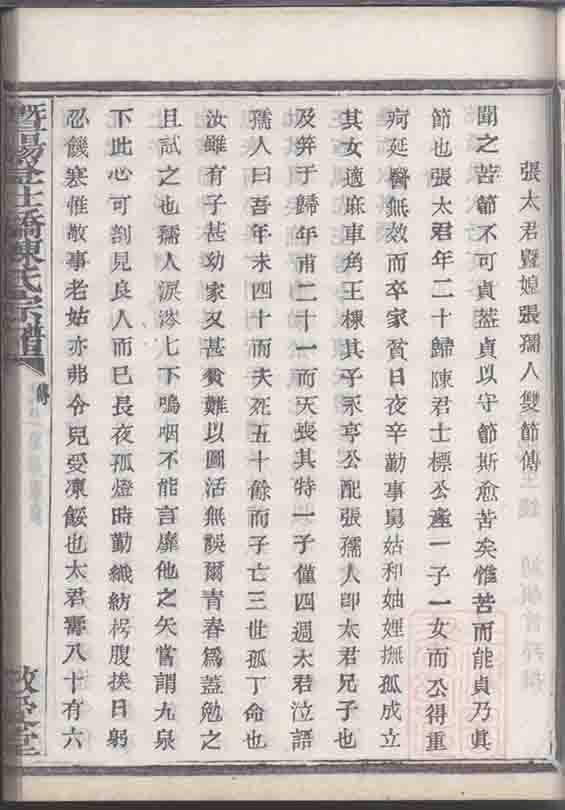 張太君暨媳張孺人雙節傳
聞之苦節不可貞葢貞以守節斯愈苦矣惟苦而能貞乃眞
節也張太君年二十歸陳君士標公產一子一女而公得重
疴延醫無效而卒家貧日夜辛勤事舅姑和妯娌撫孤成立
其女適麻車角王棟其子永亨公配張孺人卽太君兄子也
及笄于歸年甫二十一而天喪其特一子僅四週太君泣語
孺人曰吾年未四十而夫死五十餘而子亡三世孤丁命也
汝雖有子甚幼家又甚貧難以圖活無誤爾青春爲蓋勉之
且試之也孺人淚涔七下嗚咽不能言靡他之矢嘗謂九泉
下此心可剖見良人而已長夜孤燈時勤織紡枵腹挨日躬
忍饑寒惟敬事老姑亦弗令兒受凍餒也太君壽八十有六
暨陽金士橋陳氏宗譜
傳
敬愛堂